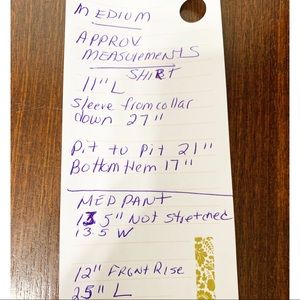 MEDIUM
APPROV
MEASUREMENTS
SHIRT
11" L
Sleeve from collar
down 27"
Pit to Pit 21"
Bottom Hem 17"
MED PANT
13.5" Not Stretched
13.5 W
12" Front Rise
25" L